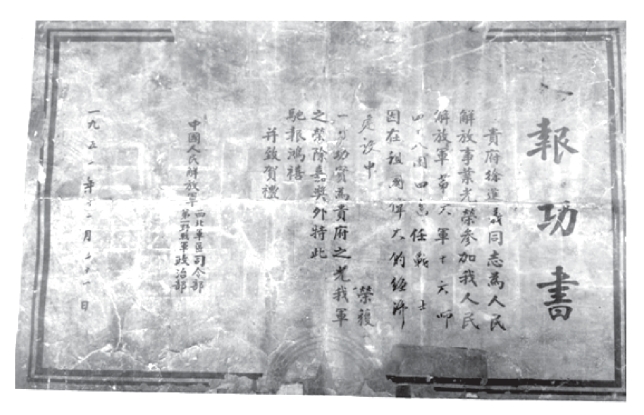 報功書
貴府徐義同志為人民
解放事業光榮參加我人民
解放軍第六軍十六師
四十八團四連任戰士
因在祖國偉大的經濟
建設中 榮獲
功實為貴府之光我軍
之榮除嘉獎外特此
馳報鴻禧
并致賀禮
中國人民解放軍西北軍區司令部
第一野戰軍政治部
一九五年月日